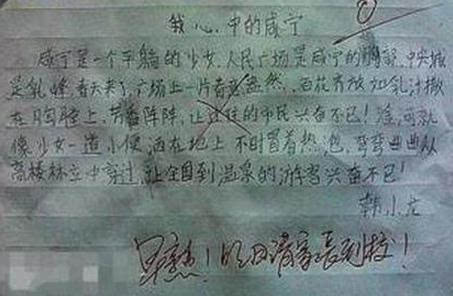 我心中的咸宁
咸宁是一个平躺的少女,人民广场是咸宁的胸部,中央城
是乳峰,春天来了,广场上一片春意盎然,百花齐放如乳汁撒
在胸脯上,芳香阵阵,让过往的市民兴奋不已!淦河就
像少女一道小便洒在地上 不时冒着热泡,弯弯曲曲从
高楼林立中穿过,让全国到温泉的游客兴奋不已!
韩小龙
早熟!明日请家长到校!